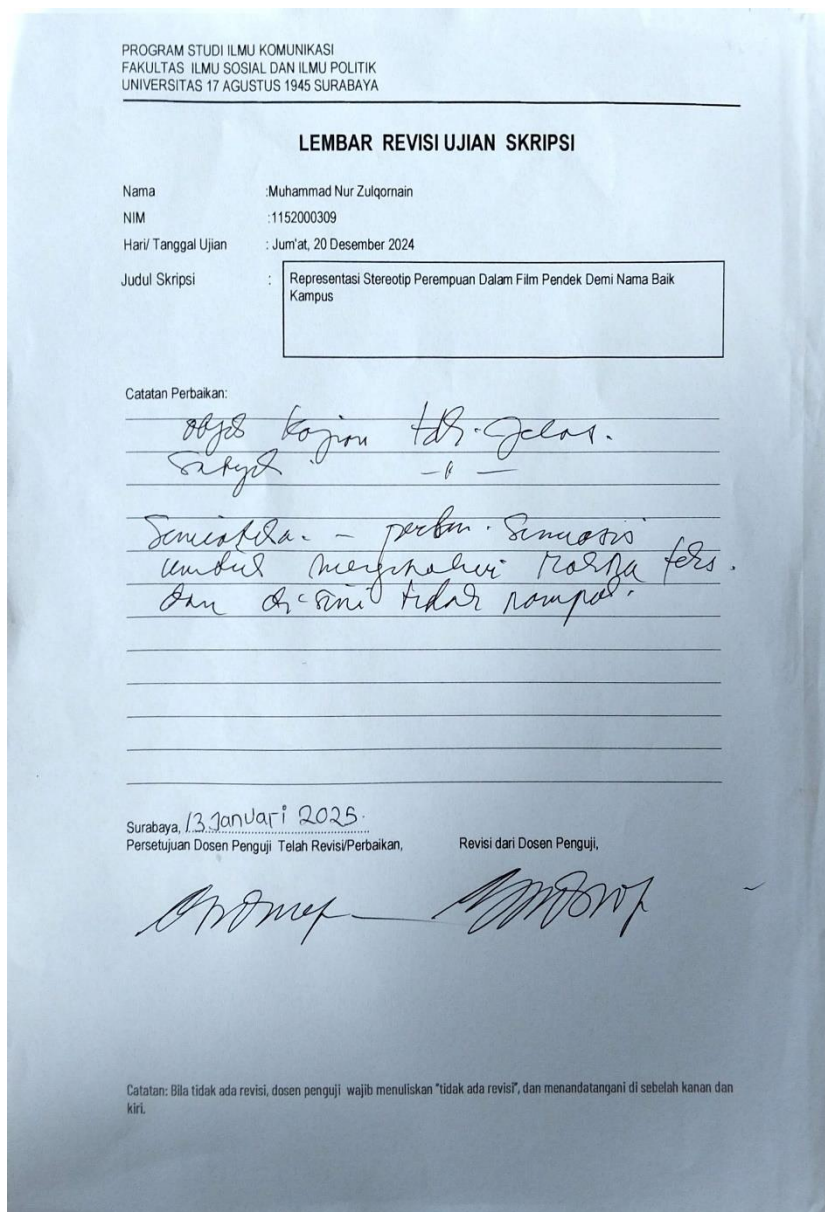 PROGRAM STUDI ILMU KOMUNIKASI
FAKULTAS ILMU SOSIAL DAN ILMU POLITIK
UNIVERSITAS 17 AGUSTUS 1945 SURABAYA
LEMBAR REVISI UJIAN SKRIPSI
Nama :Muhammad Nur Zulqornain
NIM :1152000309
Hari/ Tanggal Ujian : Jum'at, 20 Desember 2024
Judul Skripsi : Representasi Stereotip Perempuan Dalam Film Pendek Demi Nama Baik
Kampus
Catatan Perbaikan:
kajian tdk jelas.
untuk tks.
dan di sini tidak nampak.
Surabaya, 13 Januari 2025.
Persetujuan Dosen Penguji Telah Revisi/Perbaikan, Revisi dari Dosen Penguji,
Catatan: Bila tidak ada revisi, dosen penguji wajib menuliskan "tidak ada revisi", dan menandatangani di sebelah kanan dan
kiri.